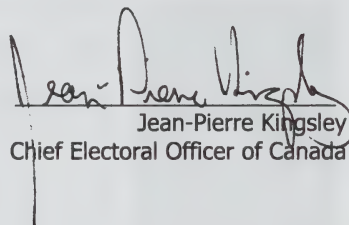 Jean Pierre Kingsley
Jean-Pierre Kingsley
Chief Electoral Officer of Canada